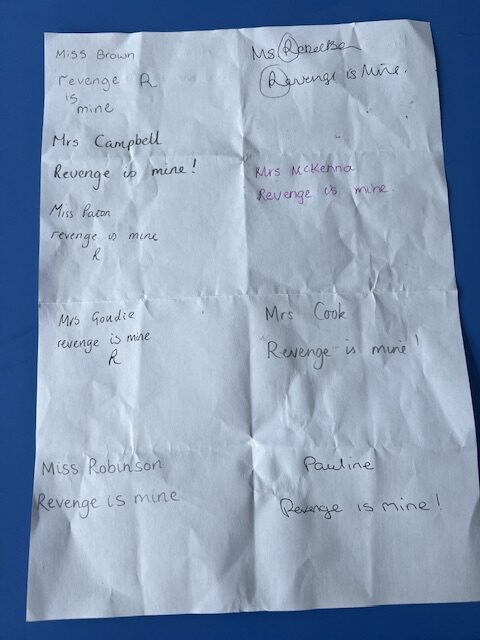 Miss Brown
revenge R
is
mine
Mrs Campbell
Revenge is mine!
Miss Paton
revenge is mine
R
Mrs Goudie
revenge is mine
R
Miss Robinson
Revenge is mine
Ms
Revenge is Mine.
Mrs McKenna
Revenge is mine.
Mrs Cook
Revenge is mine!
Pauline
Revenge is mine!